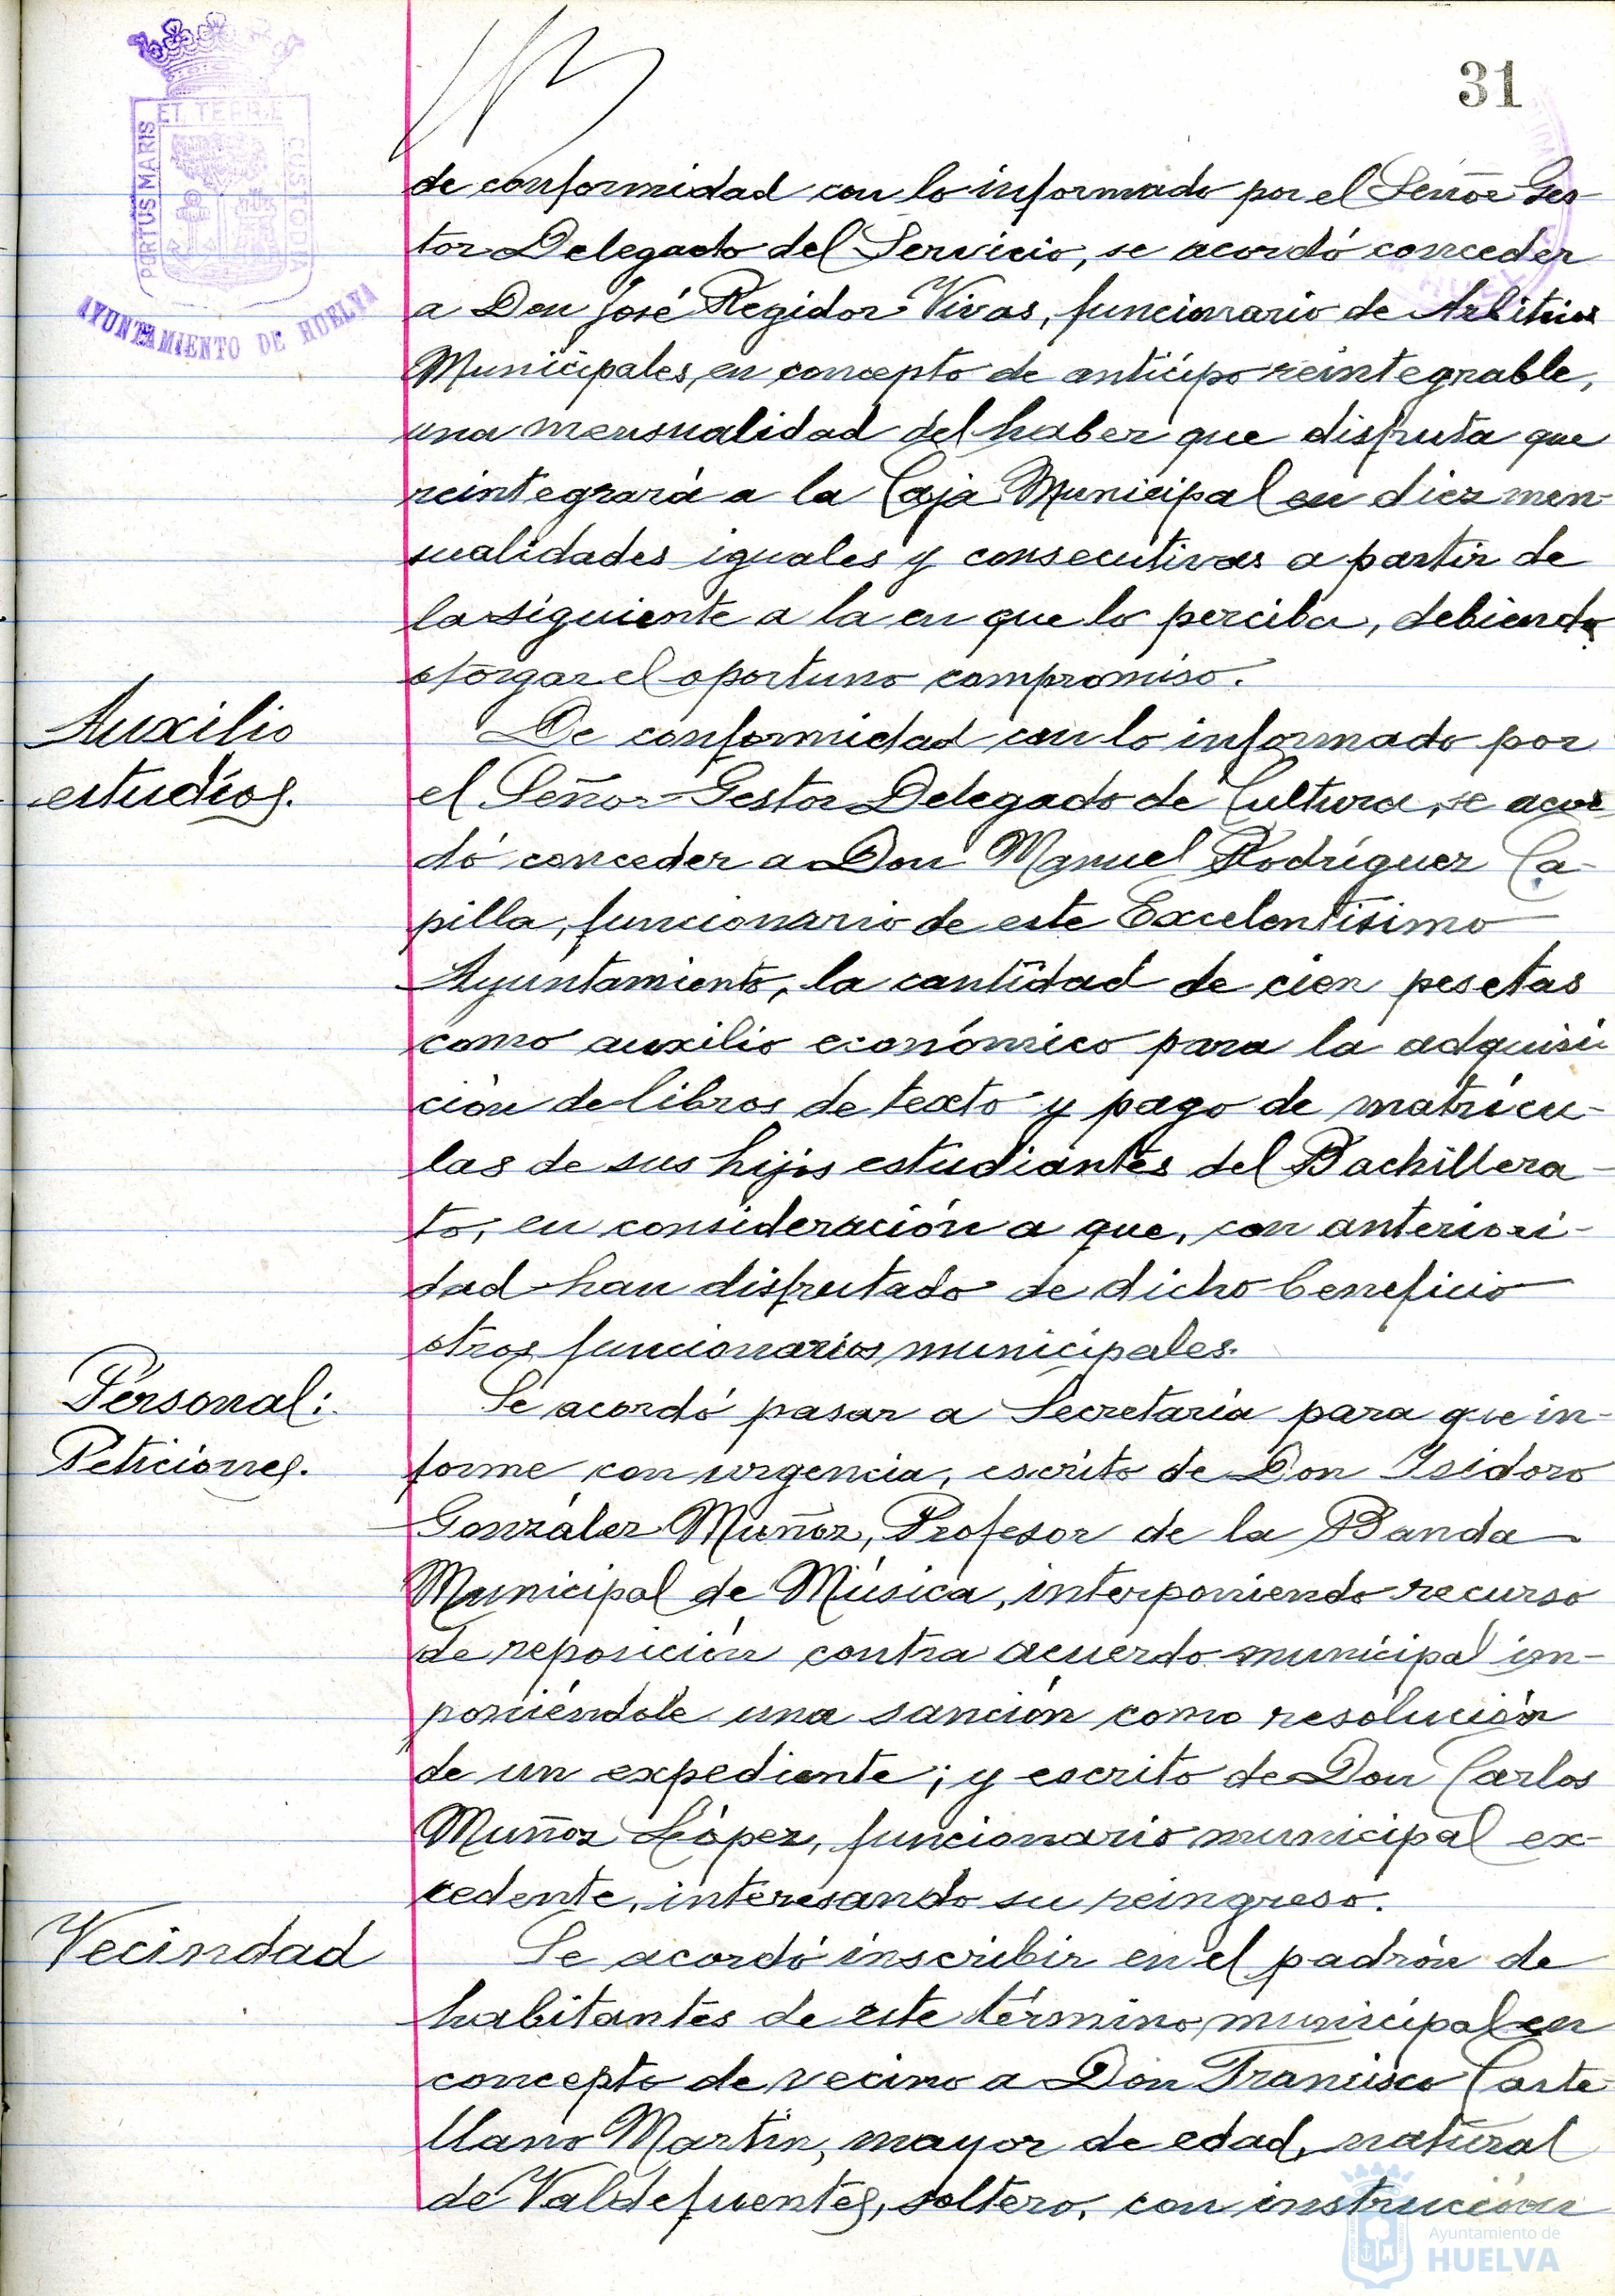 31
ET TERRE
PORTUS MARIS
CUSTODIA
AYUNTAMIENTO DE HUELVA
de conformidad con lo informado por el Señor Ges-
tor Delegado del Servicio, se acordó conceder
a Don José Regidor Vivas, funcionario de Arbitrios
Municipales, en concepto de anticipo reintegrable,
una mensualidad del haber que disfruta que
reintegrará a la Caja Municipal en diez men-
sualidades iguales y consecutivas a partir de
la siguiente a la en que lo perciba, debiendo
otorgar el oportuno compromiso.
Auxilio
estudios.
De conformidad con lo informado por
el Señor Gestor Delegado de Cultura, se acor-
dó conceder a Don Manuel Rodríguez Ca-
pilla, funcionario de este Excelentísimo
Ayuntamiento, la cantidad de cien pesetas
como auxilio económico para la adquisi-
ción de libros de texto y pago de matrícu-
las de sus hijos estudiantes del Bachillera-
to, en consideración a que, con anteriori-
dad han disfrutado de dicho beneficio
otros funcionarios municipales.
Personal:
Peticiones.
Se acordó pasar a Secretaría para que in-
forme con urgencia, escrito de Don Isidoro
González Muñoz, Profesor de la Banda
Municipal de Música, interponiendo recurso
de reposición contra acuerdo municipal im-
poniéndole una sanción como resolución
de un expediente; y escrito de Don Carlos
Muñoz López, funcionario municipal ex-
cedente, interesando su reingreso.
Vecindad
Se acordó inscribir en el padrón de
habitantes de este término municipal en
concepto de vecino a Don Francisco Caste-
llano Martín, mayor de edad, natural
de Valdefuentes, soltero, con instrucción
Ayuntamiento de
HUELVA